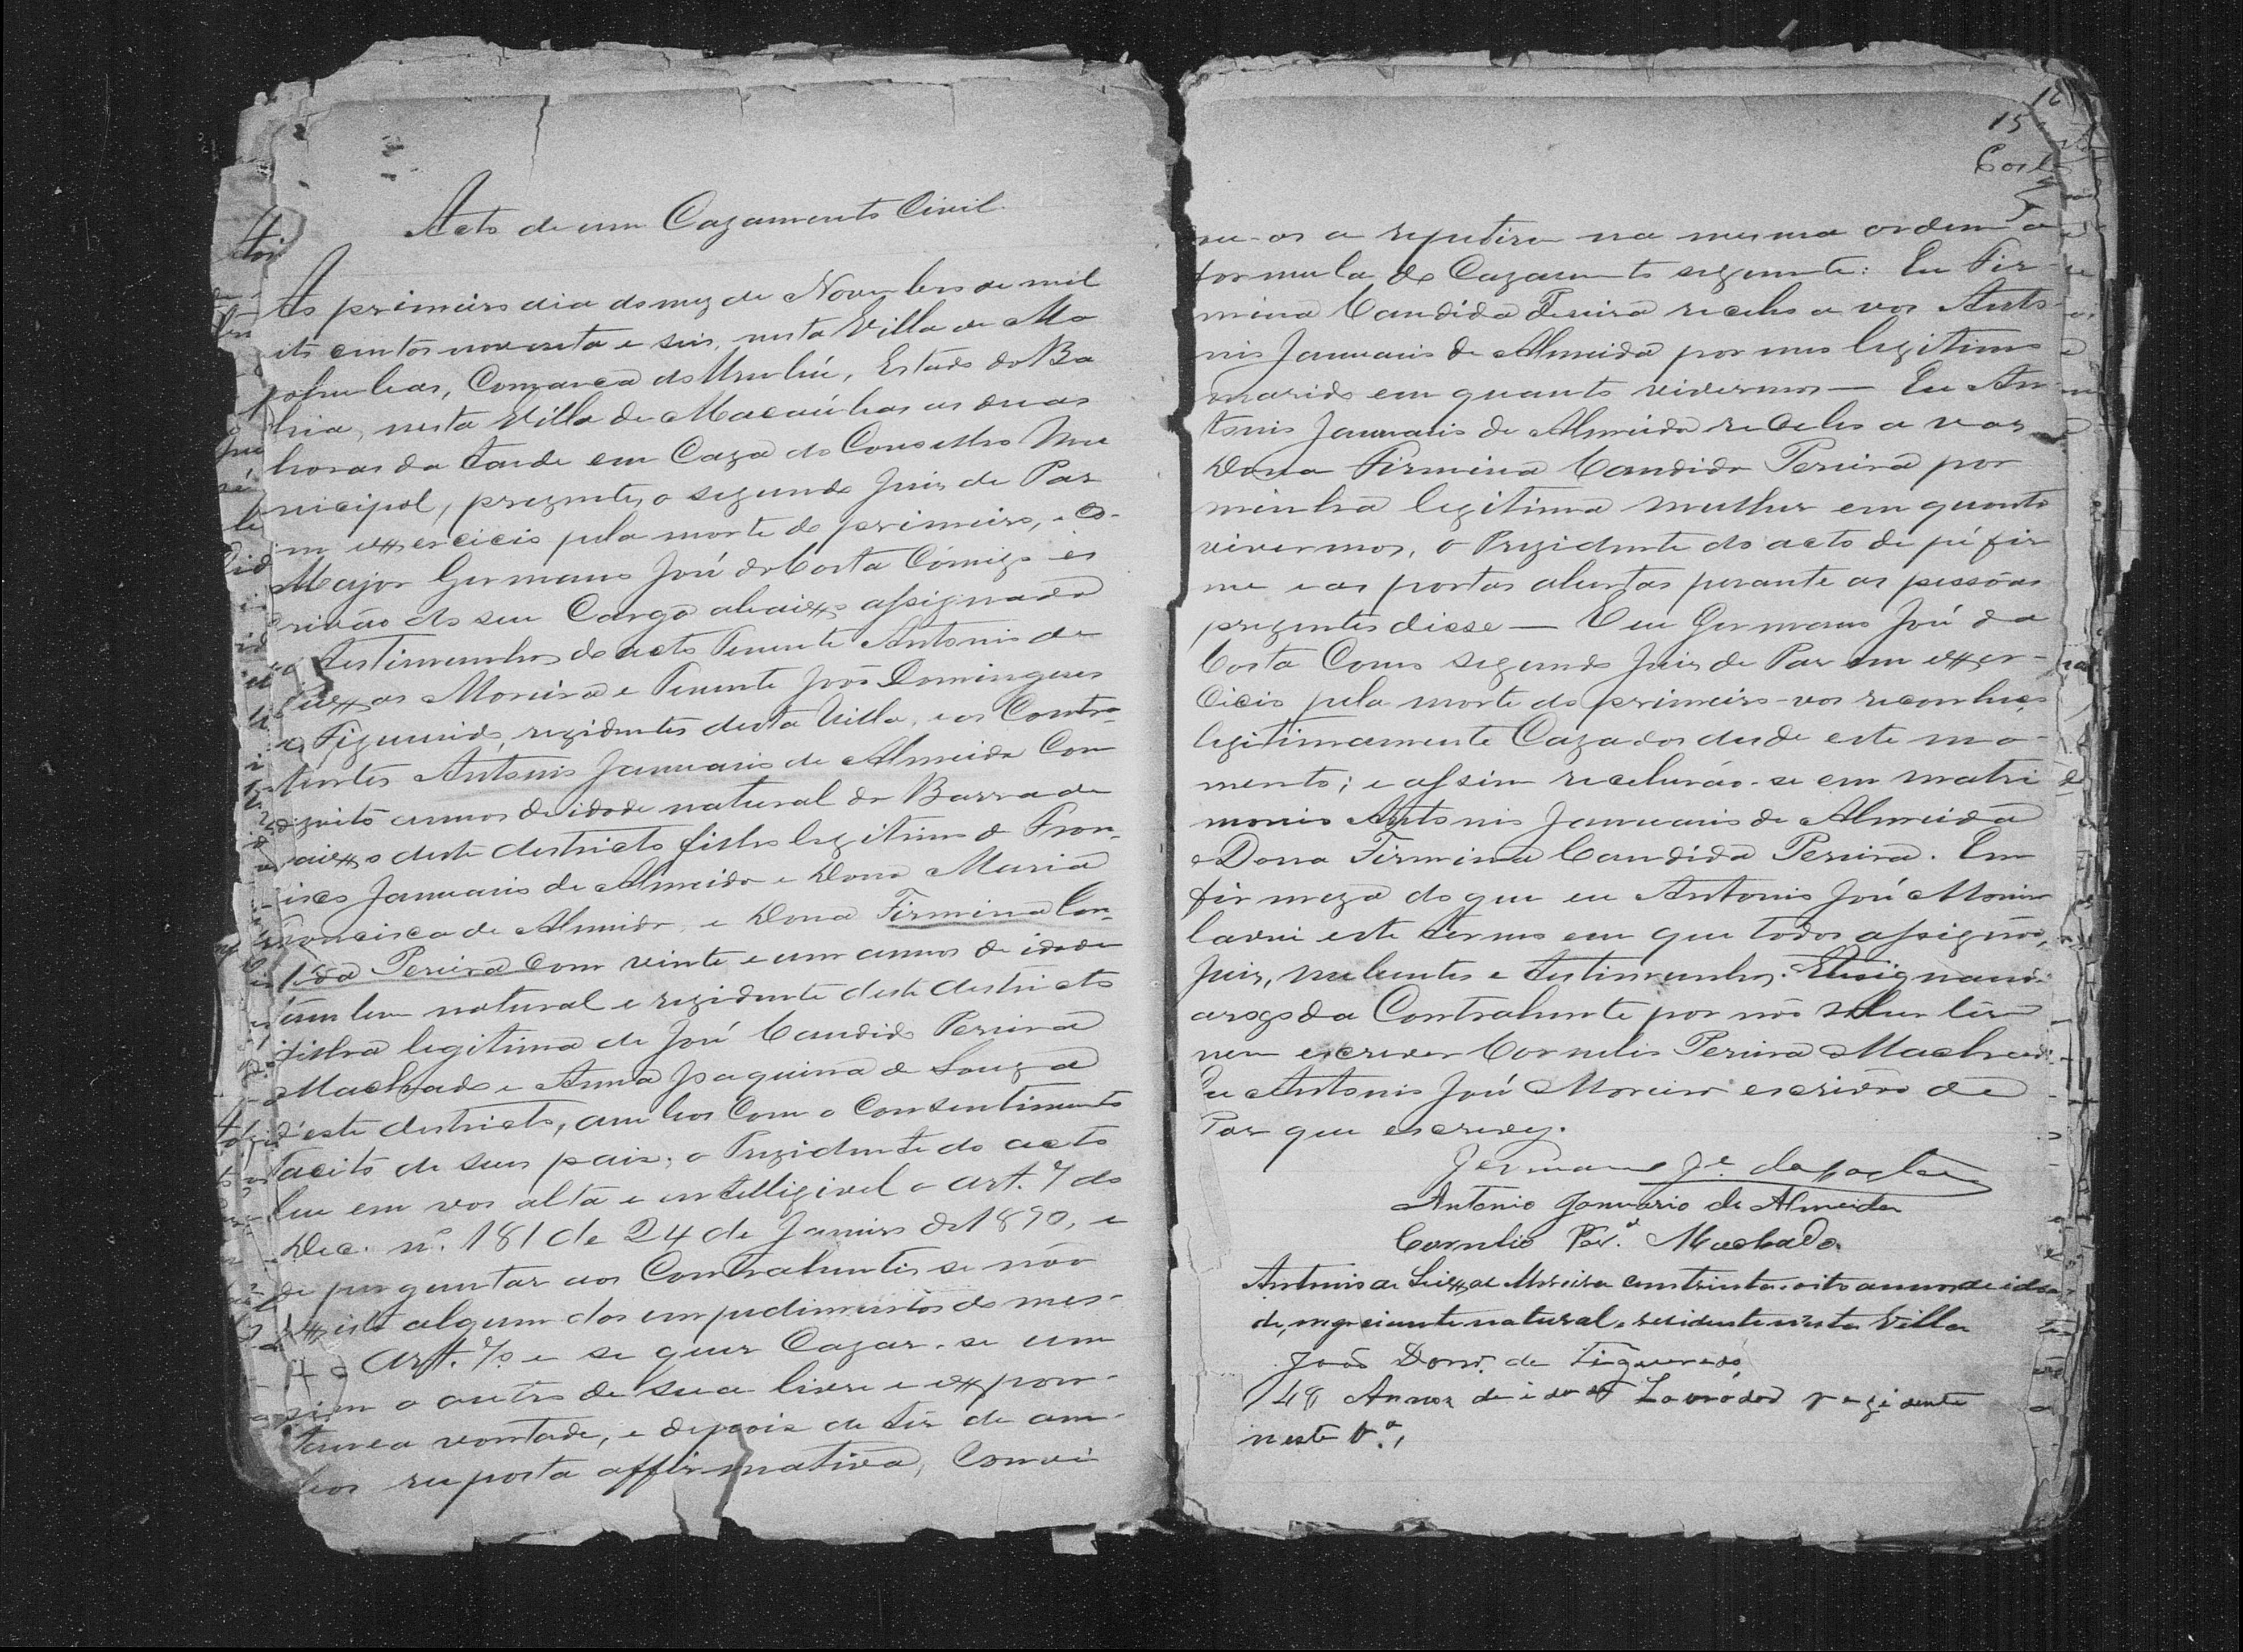 Acto de um Cazamento Civil
As primeiro dia do mez de Novembro de mil
oito centos noventa e seis, nesta Villa de Ma
cahubas, Comarca do Urubú, Estado da Ba
hia, nesta Villa de Macaúbas as duas
horas da tarde em Caza do Conselho Mu
nicipal, prezentes o segundo Juis de Pas
em exxercicio pela morte do primeiro, o Ci-
Major Germano José da Costa Cómigo es
crivão do seu Cargo abaixxo assignado
as testimunhas do acto Tenente Antonio de
Seixxas Moreira e Tenente João Domingues
de Figueiredo, rezidentes desta Villa, e os Contra-
hentes Antonio Januario de Almeida Com
dizoito annos de idade natural da Barra de
baixxo deste destricto filho legitimo de Fran-
cisco Januario de Almeida e Dona Maria
Francisca de Almeida, e Dona Firmina Can-
dida Pereira Com vinte e um annos de idade
tambem natural e rezidente deste destricto
filha legitima de José Candido Pereira
Machado e Anna Joaquina de Souza
d'este destricto, ambos Com o Consentimento
tacito de seus pais, o Prezidente do acto
leu em vos alta e entelligivel o art. 7 do
Dec. nº. 181 de 24 de Janeiro de 1890, e
de purguntar aos Contrahentes se não
exxiste algum dos empedimentos do mes-
mo Art. 7º e se quer Cazar-se um
com o outro de sua livre e exxpon-
tanea vontade, e depois de têr de am-
bos resposta affirmativa, Convi
15
Cost
dou-os a repetirem na mesma ordem a
formula do Cazamento seguente: Eu Fir-
mina Candida Pereira recebo a vos Anto-
nio Januario de Almeida por meu legitimo
marido em quanto vivermos — Eu An-
tonio Januario de Almeida recebo a vos
Dona Firmina Candida Pereira por
minha legitima mulher em quanto
vivermos, o Prezidente do acto de pé fir
me e as portas abertas perante as pessôas
prezentes disse — E eu Germano José da
Costa Como segundo Juis de Pas em exxer-
cicio pela morte do primeiro vos reconheço
legitimamente Cazados desde este mo-
mento; e assim receberão-se em matri
monio Antonio Januario de Almeida
e Dona Firmina Candida Pereira. Em
firmeza do que eu Antonio José Moreira
lavrei este termo em que todos assignão,
Juis, nubentes e testimunhas. Assignando
arogo da Contrahente por não saber lêr
nem escrever Cornelio Pereira Machado.
Eu Antonio José Moreira escrivão de
Pas que escrevy.
Germano Jé. da Costa
Antonio Januario de Almeida
Cornelio Per.ª Machado.
Antonio de Seixxas Moreira com trinta e oito annos de ida
de, negociante natural e rezidente n'esta Villa
João Dom.s de Figueredo
48 Annos de idade Lavrador rezidente
neste V.ª,